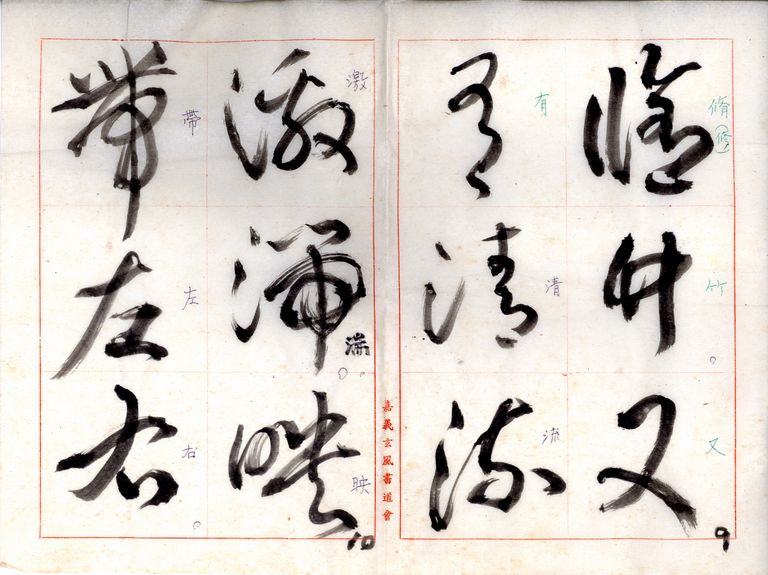 脩竹又
脩(修)
竹。
又
9
有清流
有
清
流
嘉義玄風書道會
激湍映
激
湍。。
映
10
帶左右
帶
左
右。